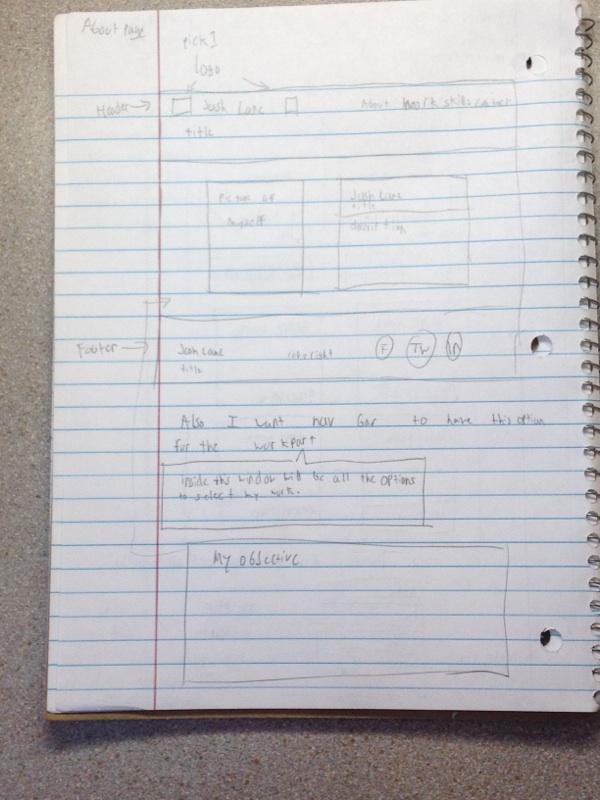 About Page
pick 1
Logo
Header
Josh Lane
About Work skills contact
title
Picture of
myself
Josh Lane
title
Footer
Josh Lane
copyright
F
TW
in
title
Also I want nav bar to have this option
for the work part
inside this window will be all the options
to select my work.
My objective